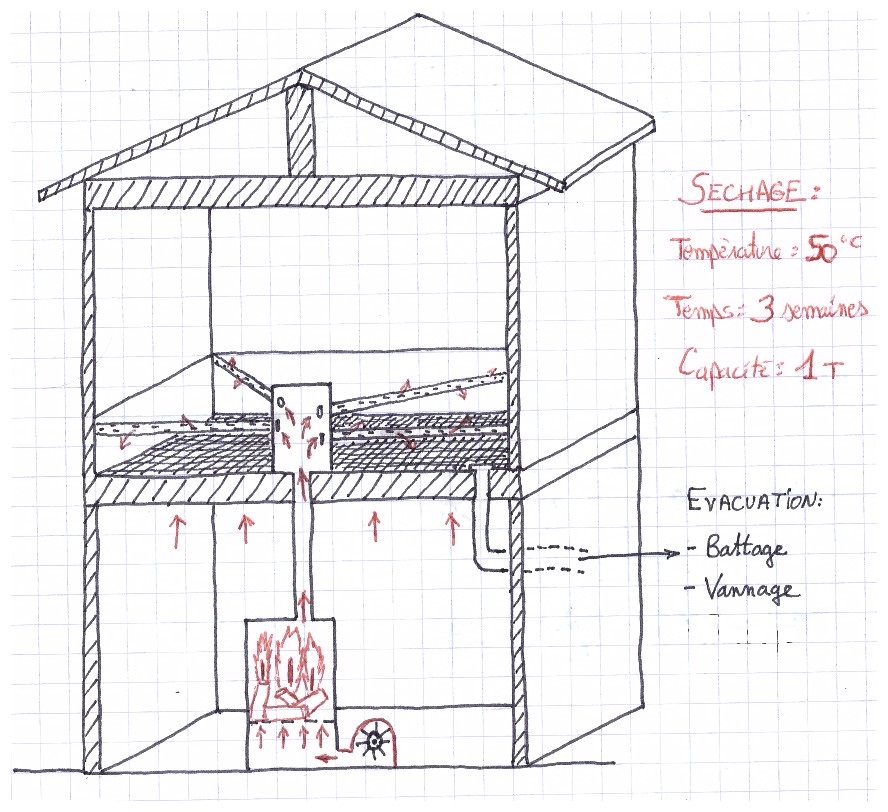 SECHAGE:
Température = 50°C
Temps = 3 semaines
Capacité: 1T
EVACUATION:
- Battage
- Vannage